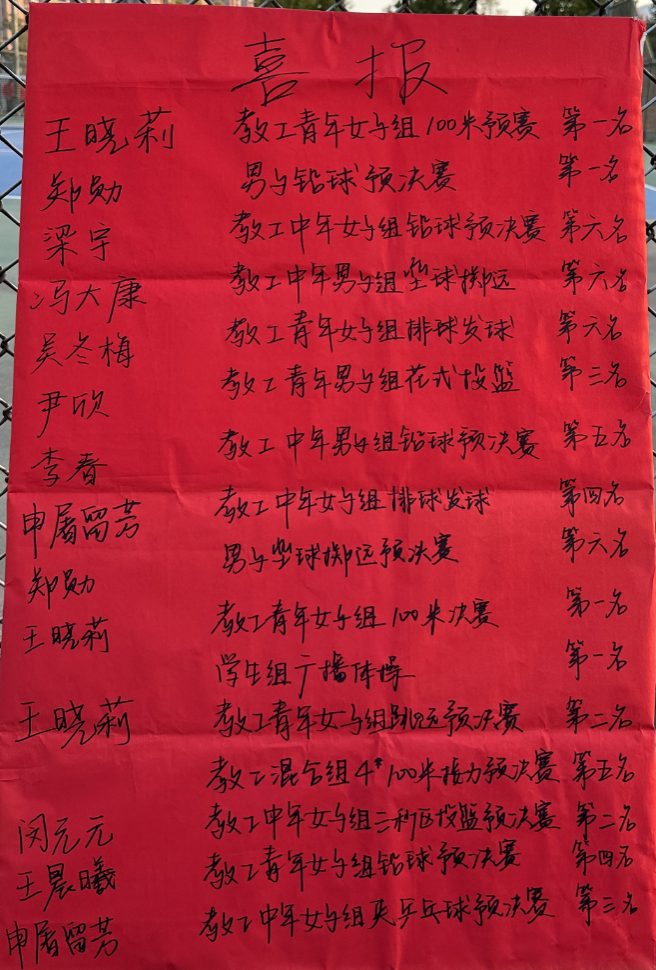 喜报
王晓莉 教工青年女子组100米预赛 第一名
郑勋 男子铅球预决赛 第一名
梁宇 教工中年女子组铅球预决赛 第六名
冯大康 教工中年男子组垒球掷远 第六名
吴冬梅 教工青年女子组排球发球 第六名
尹欣 教工青年男子组花式投篮 第三名
李春 教工中年男子组铅球预决赛 第五名
申屠留芳 教工中年女子组排球发球 第四名
郑勋 男子垒球掷远预决赛 第六名
王晓莉 教工青年女子组100米决赛 第一名
学生组广播体操 第一名
王晓莉 教工青年女子组跳远预决赛 第二名
教工混合组4*100米接力预决赛 第五名
闵元元 教工中年女子组三秒区投篮预决赛 第二名
王晨曦 教工青年女子组铅球预决赛 第四名
申屠留芳 教工中年女子组夹乒乓球预决赛 第三名